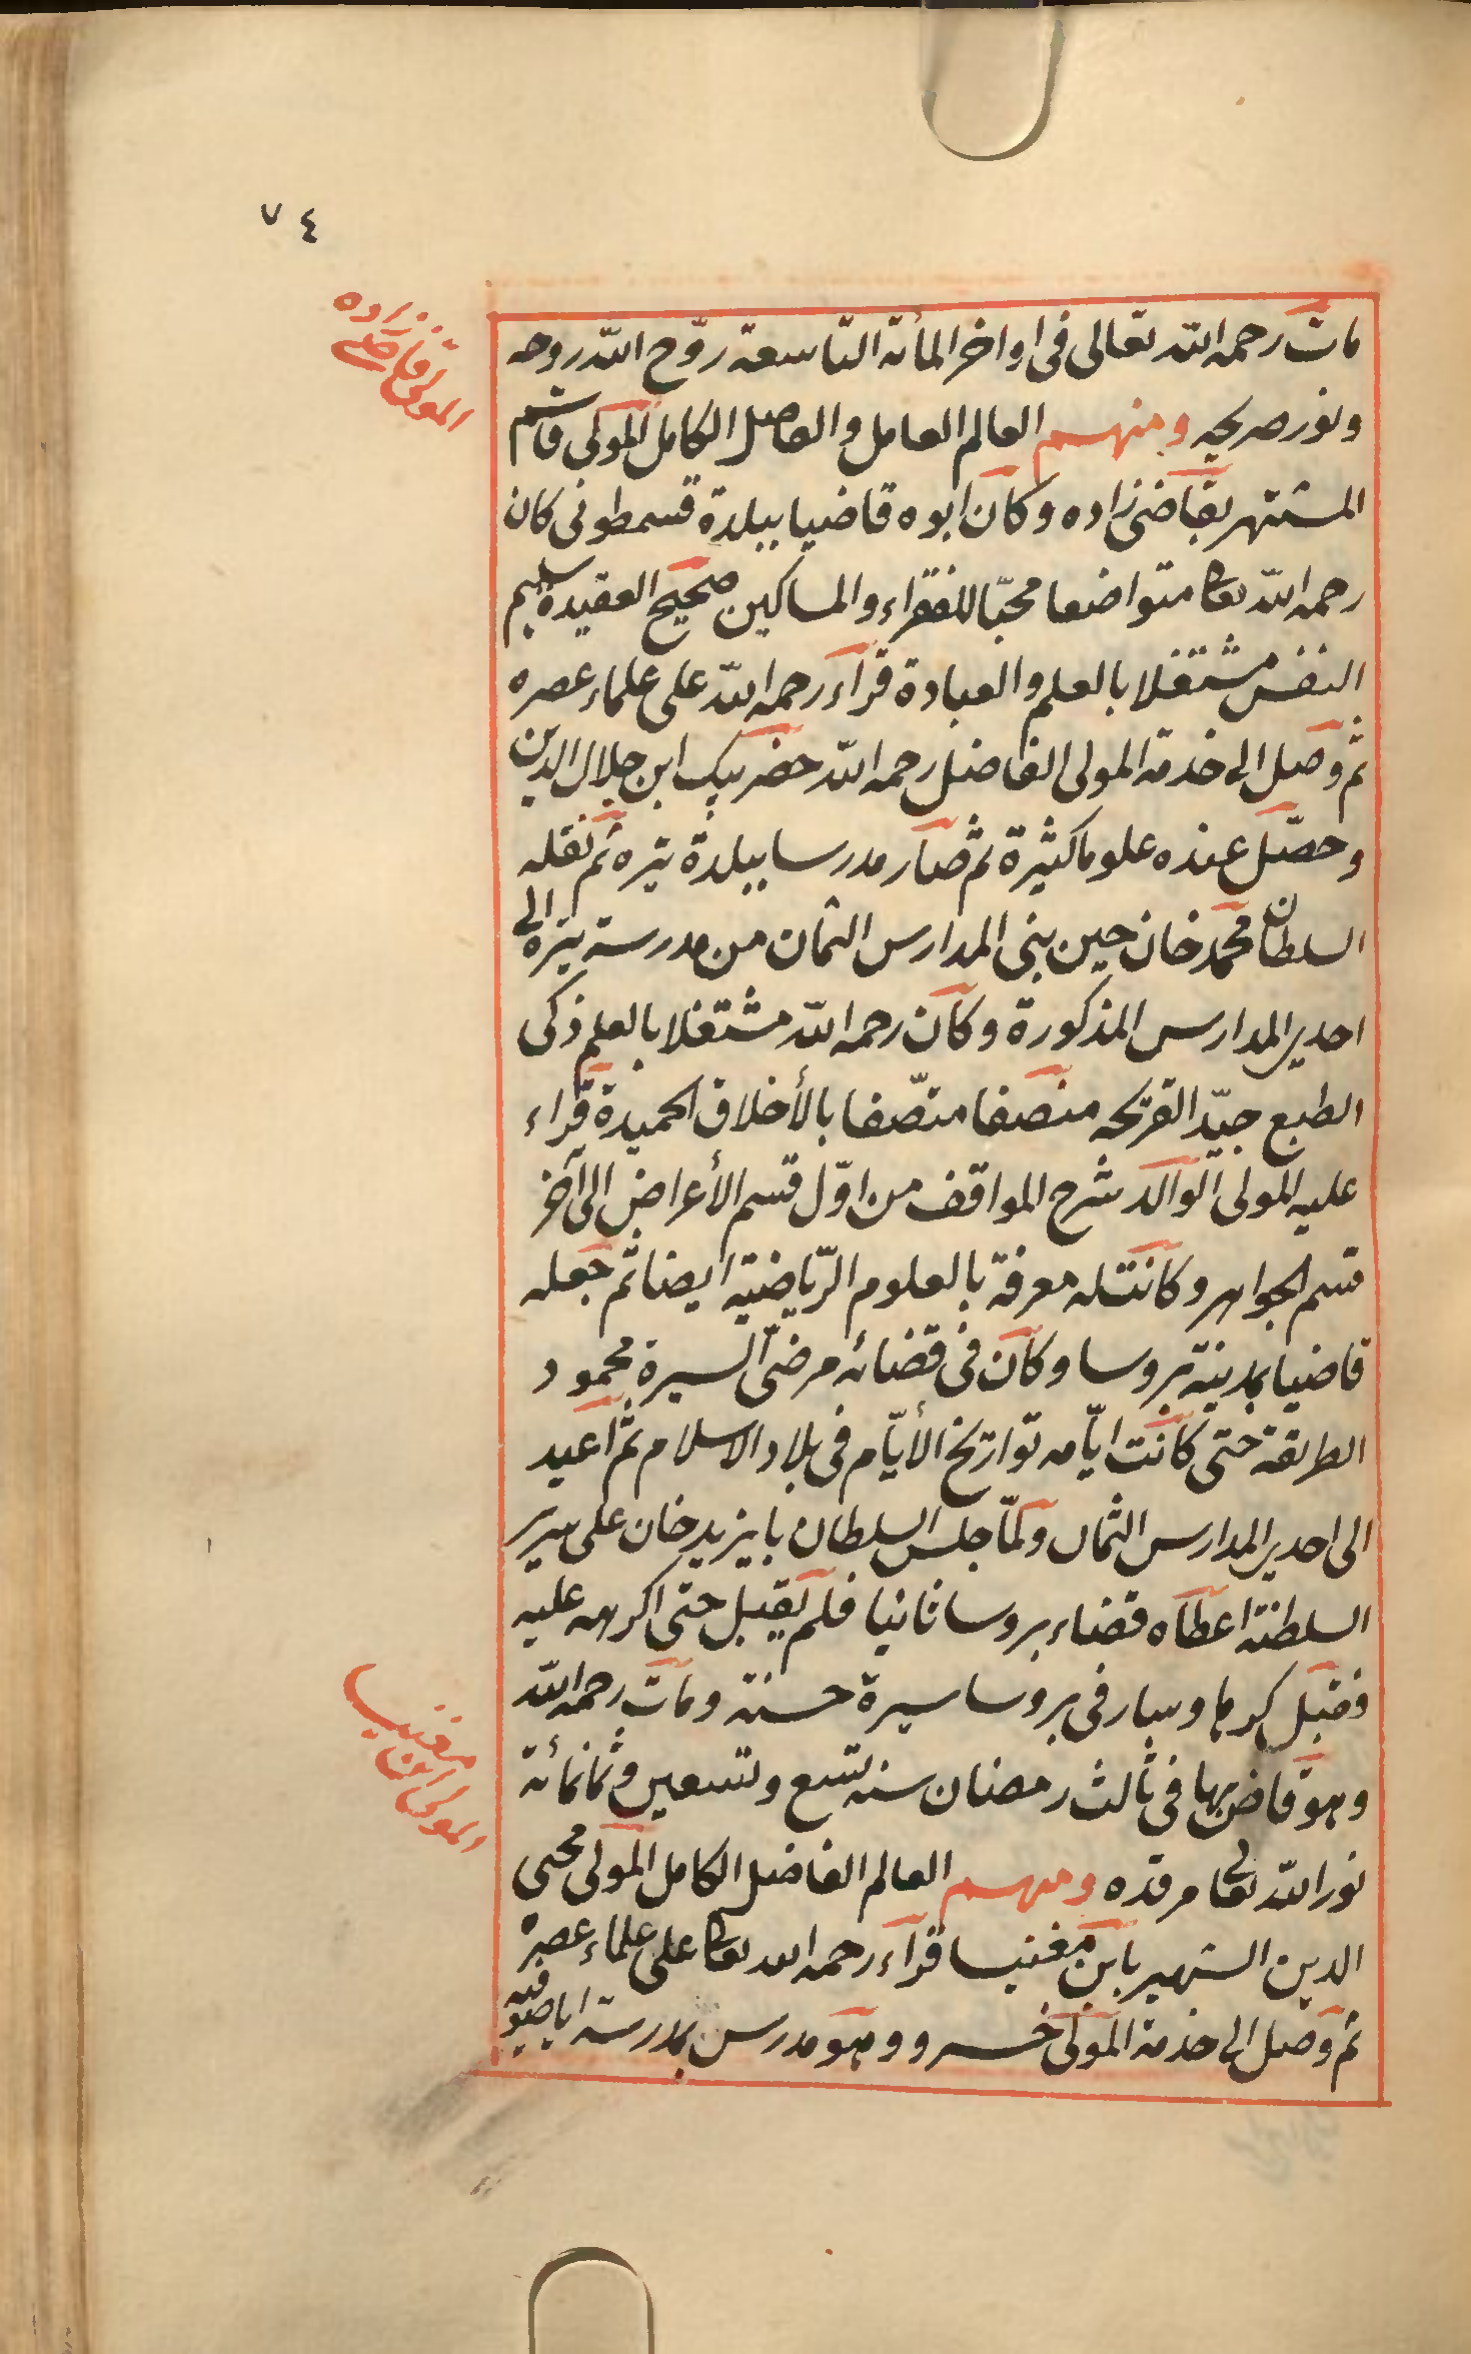 ٧٤
المولى قاضي زاده
مات رحمه الله تعالى فى اواخر المأئة التاسعة روّح الله روحه
ونور ضريحه ومنهم العالم العامل والفاضل الكامل المولى قاسم
المشتهر بقاضى زاده وكان ابوه قاضيا ببلدة قسمطونى كان
رحمه الله تعا متواضعا محبّا للفقراء والمساكين صحيح العقيدة سليم
النفس مشتغلا بالعلم والعبادة قرآء رحمه الله على علماء عصره
ثم وصل الى خدمة المولى الفاضل رحمه الله حضر بيك ابن جلال الدين
وحصّل عنده علوما كثيرة ثم صار مدرسا ببلدة تيره ثم نقله
السلطان محمد خان حين بنى المدارس الثمان من مدرسة تيره الى
احدير المدارس المذكورة وكان رحمه الله مشتغلا بالعلم ذكى
الطبع جيّد القريحه منصفا متّصفا بالأخلاق الحميدة قراء
عليه المولى الوالد شرح المواقف من اوّل قسم الأعراض الى آخر
قسم الجواهر وكانت له معرفة بالعلوم الرّياضية ايضا ثم جعله
قاضيا بمدينة بروسا وكان فى قضائه مرضىّ السيرة محمود
الطريقة حتى كانت ايّامه تواريخ الأيّام فى بلاد الاسلام ثم اعيد
الى احدير المدارس الثمان ولمّا جلس السلطان بايزيد خان على سرير
السلطنة اعطاه قضاء بروسا ثانيا فلم يقبل حتى اكرهه عليه
فقبل كرها وسار فى بروسا سيرة حسنة ومات رحمه الله
وهو قاض بها فى ثالث رمضان سنه تسع وتسعين وثمانمائة
نور الله تعالى مرقده ومنهم العالم الفاضل الكامل المولى محيى
الدين الشهير بابن مغنيسا قرآء رحمه الله تعا على علماء عصره
ثم وصل الى خدمة المولى خسرو وهو مدرس بمدرسة اياصوفيه
المولى ابن مغنيسا